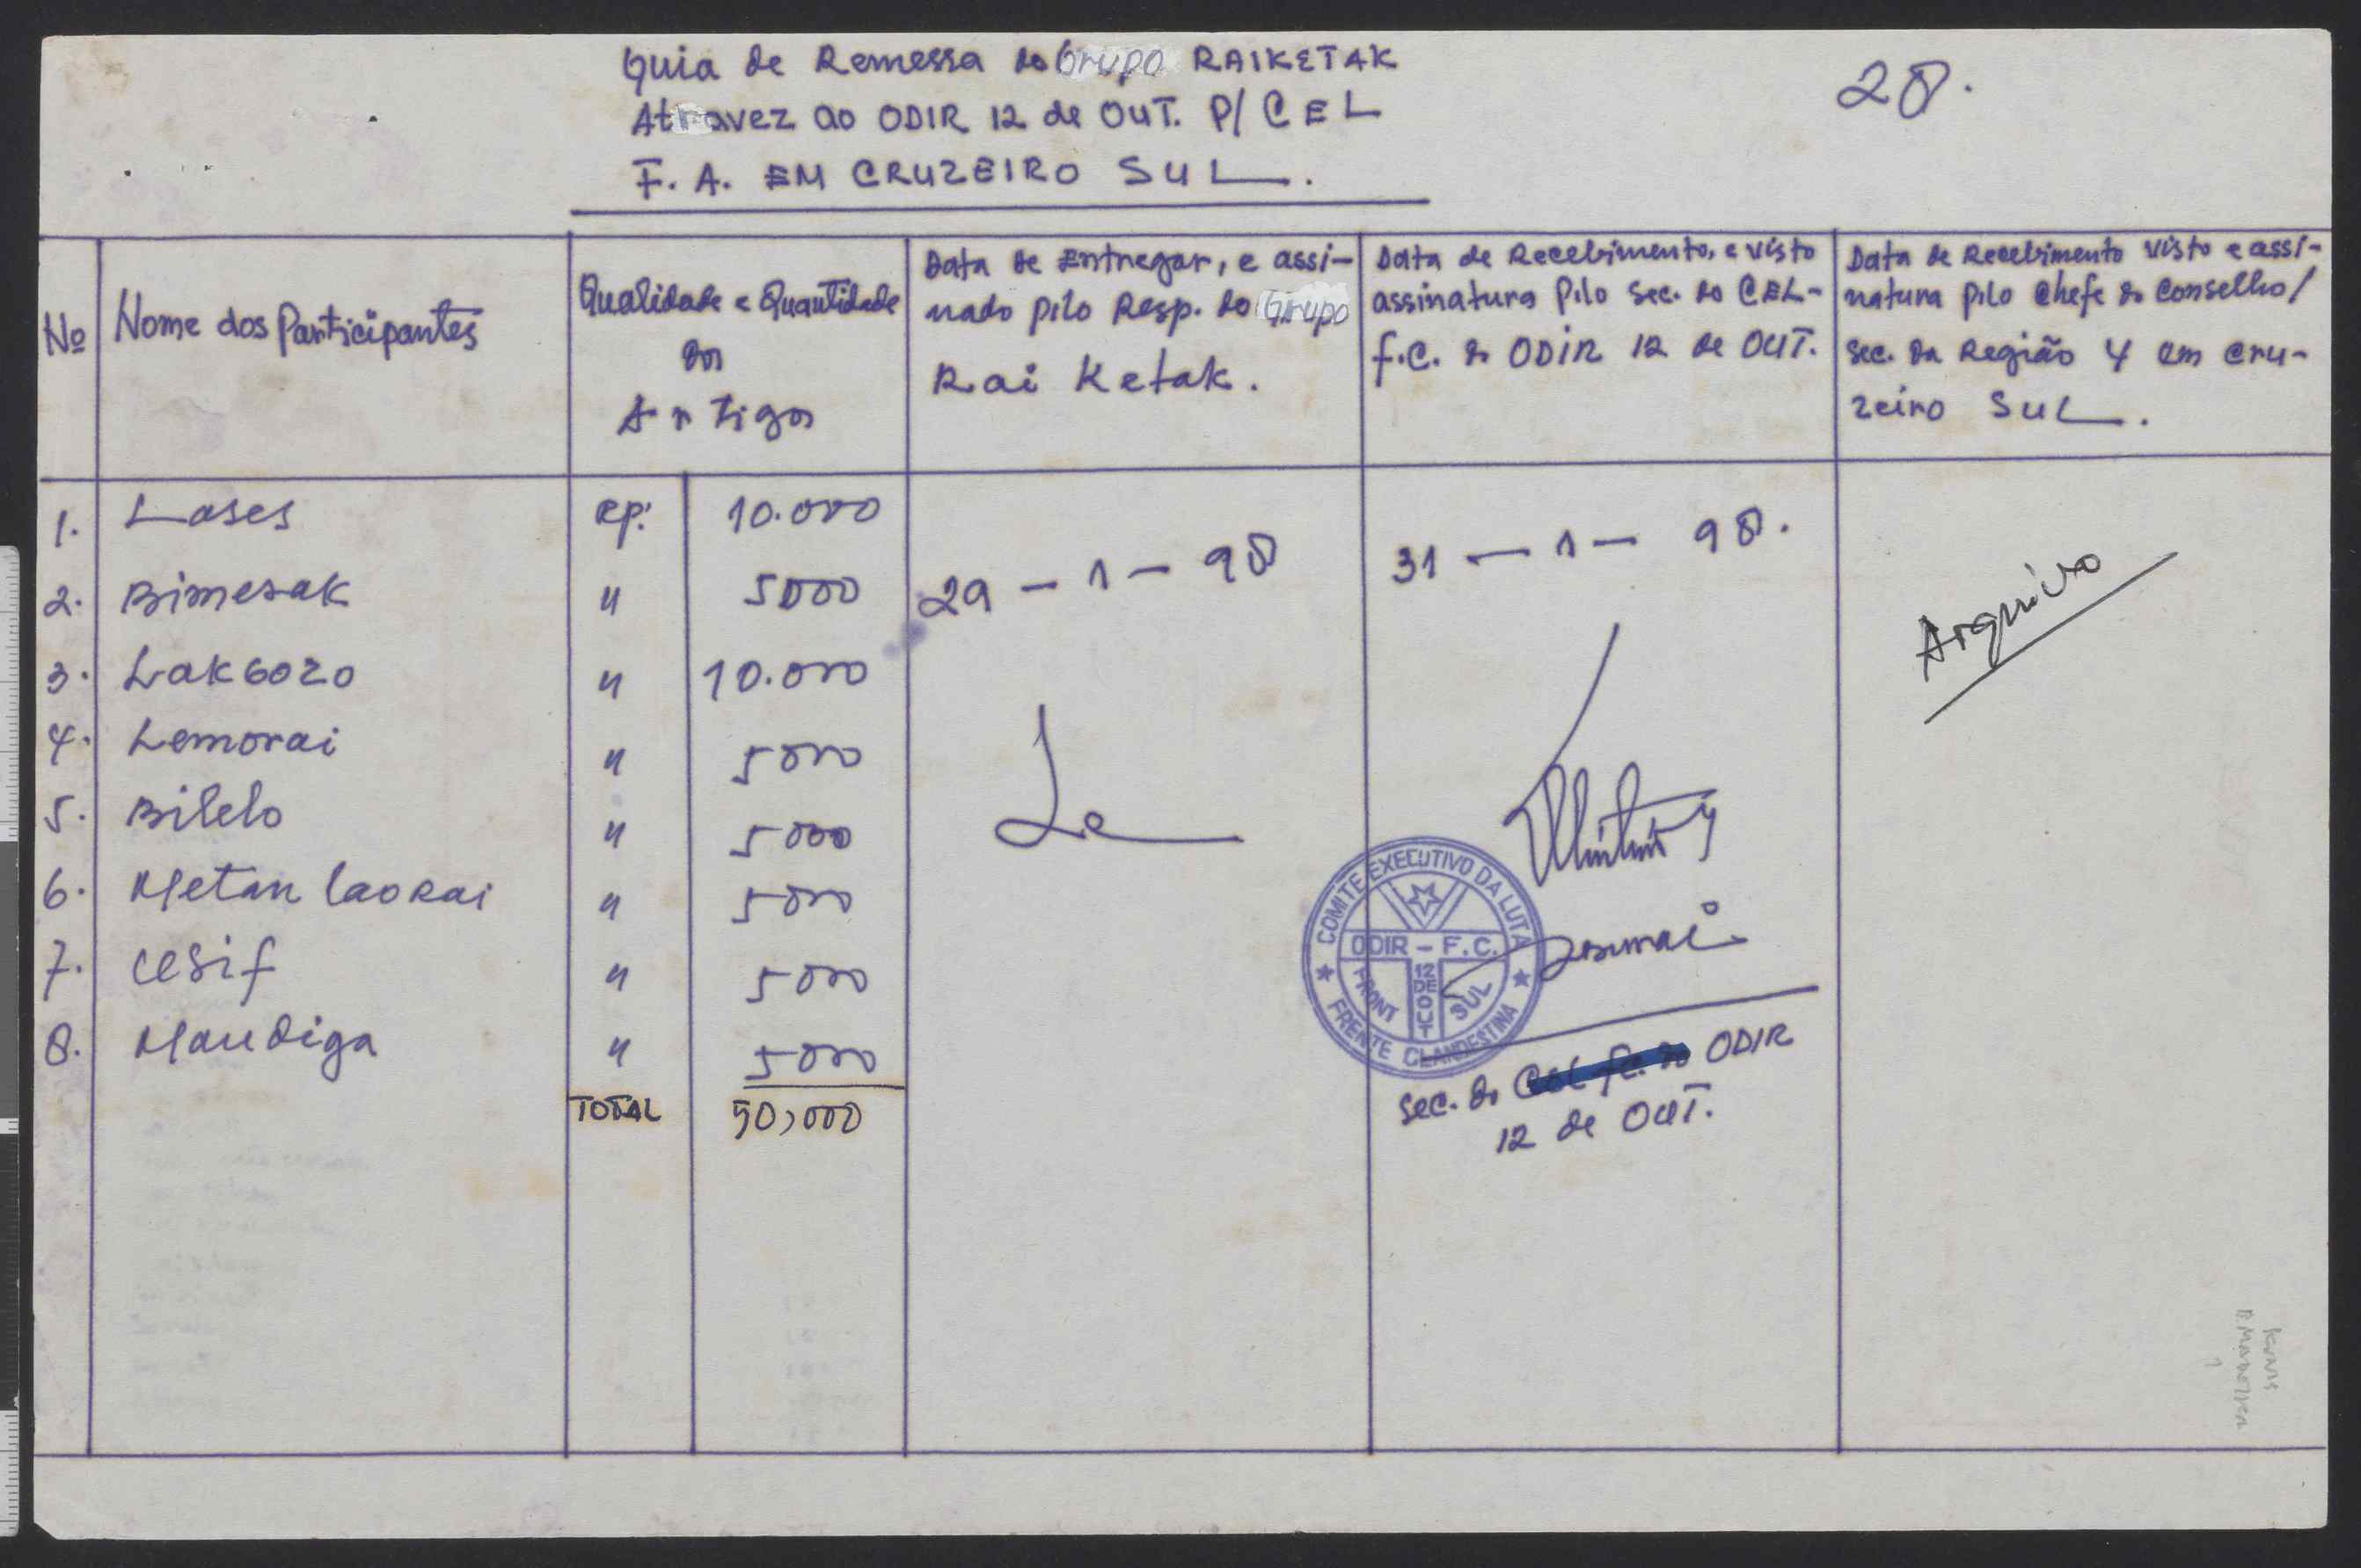 Guia de Remessa do Grupo RAIKETAK
Atravez ao ODIR 12 de OUT. P/ CEL
F. A. EM CRUZEIRO SUL.
28.
Nº
Nome dos Participantes
Qualidade e Quantidade
dos
Artigos
Data de Entregar, e assi-
nado pilo Resp. do Grupo
Rai Ketak.
Data de Recebimento, e visto
assinatura pilo Sec. do CEL-
F.C. do ODIR 12 de OUT.
Data de Recebimento visto e assi-
natura pilo Chefe do Conselho/
Sec. da Região 4 em Cru-
zeiro SUL.
1. Lases Rp: 10.000
2. Bimesak " 5000
3. Lakgozo " 10.000
4. Lemorai " 5000
5. Bilelo " 5000
6. Metan laorai " 5000
7. Cesif " 5000
8. Maudiga " 5000
TOTAL 50,000
29 - 1 - 98
Le
31 - 1 - 98.
COMITE EXECUTIVO DA LUTA
ODIR - F.C.
FRONT SUL
12 DE OUT
FRENTE CLANDESTINA
Sec. do CEL FC. do ODIR
12 de OUT.
Arquivo